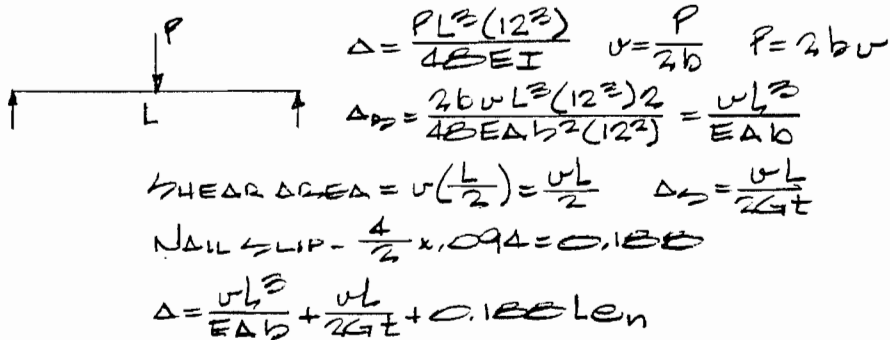 P
L
Δ = PL³(12³)/48EI   v = P/2b   P = 2bv
Δb = 2bvL³(12³)2/48EAb²(12²) = vL³/EAb
SHEAR AREA = v(L/2) = vL/2   Δs = vL/2Gt
NAIL SLIP - 4/2 x .094 = 0.188
Δ = vL³/EAb + vL/2Gt + 0.188 Len